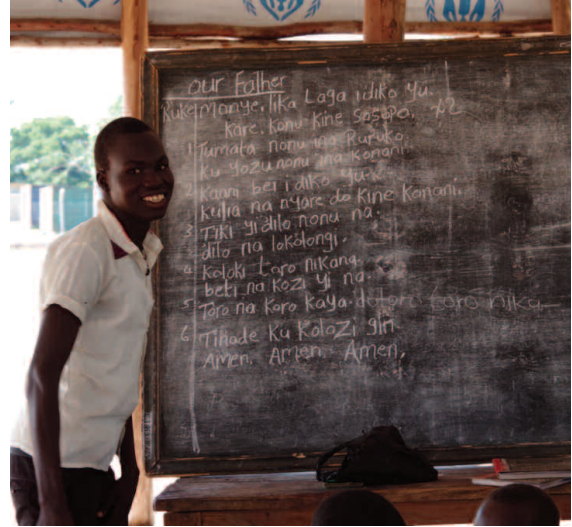 our Father
Rukemanye, Tika Laga i diko Yu.
Kare, Konu Kine Sosopo, x2
1 Tumata nonu ina Ruruko.
Ku yozu nonu ina Konani.
2 Kanni bei i diko yu-
Kulia na nyare do Kine Konani.
3 Tiki yi dilo nonu na.
dilo na lokolongi.
4 Koloki toro nikang.
beti na kozi yi na.
5 Toro na Koro kaya. toro nika
6 Tinade Ku Kolozi gin
Amen. Amen. Amen,